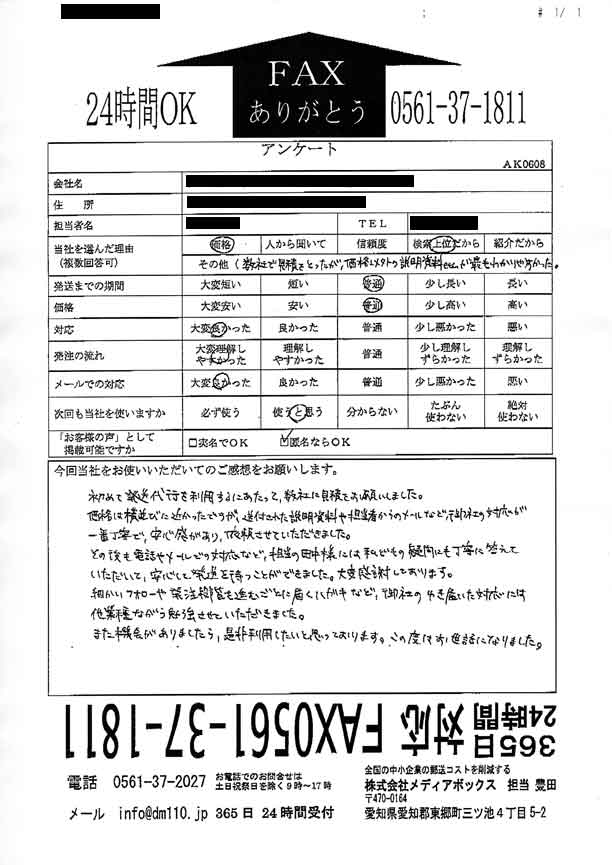 # 1/ 1
24時間OK
FAX
ありがとう
0561-37-1811
アンケート
AK0608
会社名
住 所
担当者名 TEL
当社を選んだ理由(複数回答可) 価格 人から聞いて 信頼度 検索上位だから 紹介だから
その他(数社で見積をとったが、価格以外の説明資料 が最もわかりやすかった。
発送までの期間 大変短い 短い 普通 少し長い 長い
価格 大変安い 安い 普通 少し高い 高い
対応 大変良かった 良かった 普通 少し悪かった 悪い
発注の流れ 大変理解しやすかった 理解しやすかった 普通 少し理解しずらかった 理解しずらかった
メールでの対応 大変良かった 良かった 普通 少し悪かった 悪い
次回も当社を使いますか 必ず使う 使うと思う 分からない たぶん使わない 絶対使わない
「お客様の声」として掲載可能ですか □実名でOK ☑匿名ならOK
今回当社をお使いいただいてのご感想をお願いします。
初めて発送代行を利用するにあたって、数社に見積をお願いしました。
価格は横並びに近かったですが、送付された説明資料や担当者からのメールなど、御社の対応が
一番丁寧で、安心感があり、依頼させていただきました。
その後も電話やメールでの対応など、担当の田中様には私どもの疑問にも丁寧に答えて
いただいて、安心して発送を待つことができました。大変感謝しております。
細かいフォローや発注 進むごとに届くハガキなど、御社のゆき届いた対応には
他業種ながら勉強させていただきました。
また機会がありましたら、是非利用したいと思っております。この度はお世話になりました。
365日24時間対応 FAX0561-37-1811
電話 0561-37-2027 お電話でのお問合せは土日祝祭日を除く9時~17時
メール info@dm110.jp 365日 24時間受付
全国の中小企業の郵送コストを削減する
株式会社メディアボックス 担当 豊田
〒470-0164
愛知県愛知郡東郷町三ツ池4丁目5-2